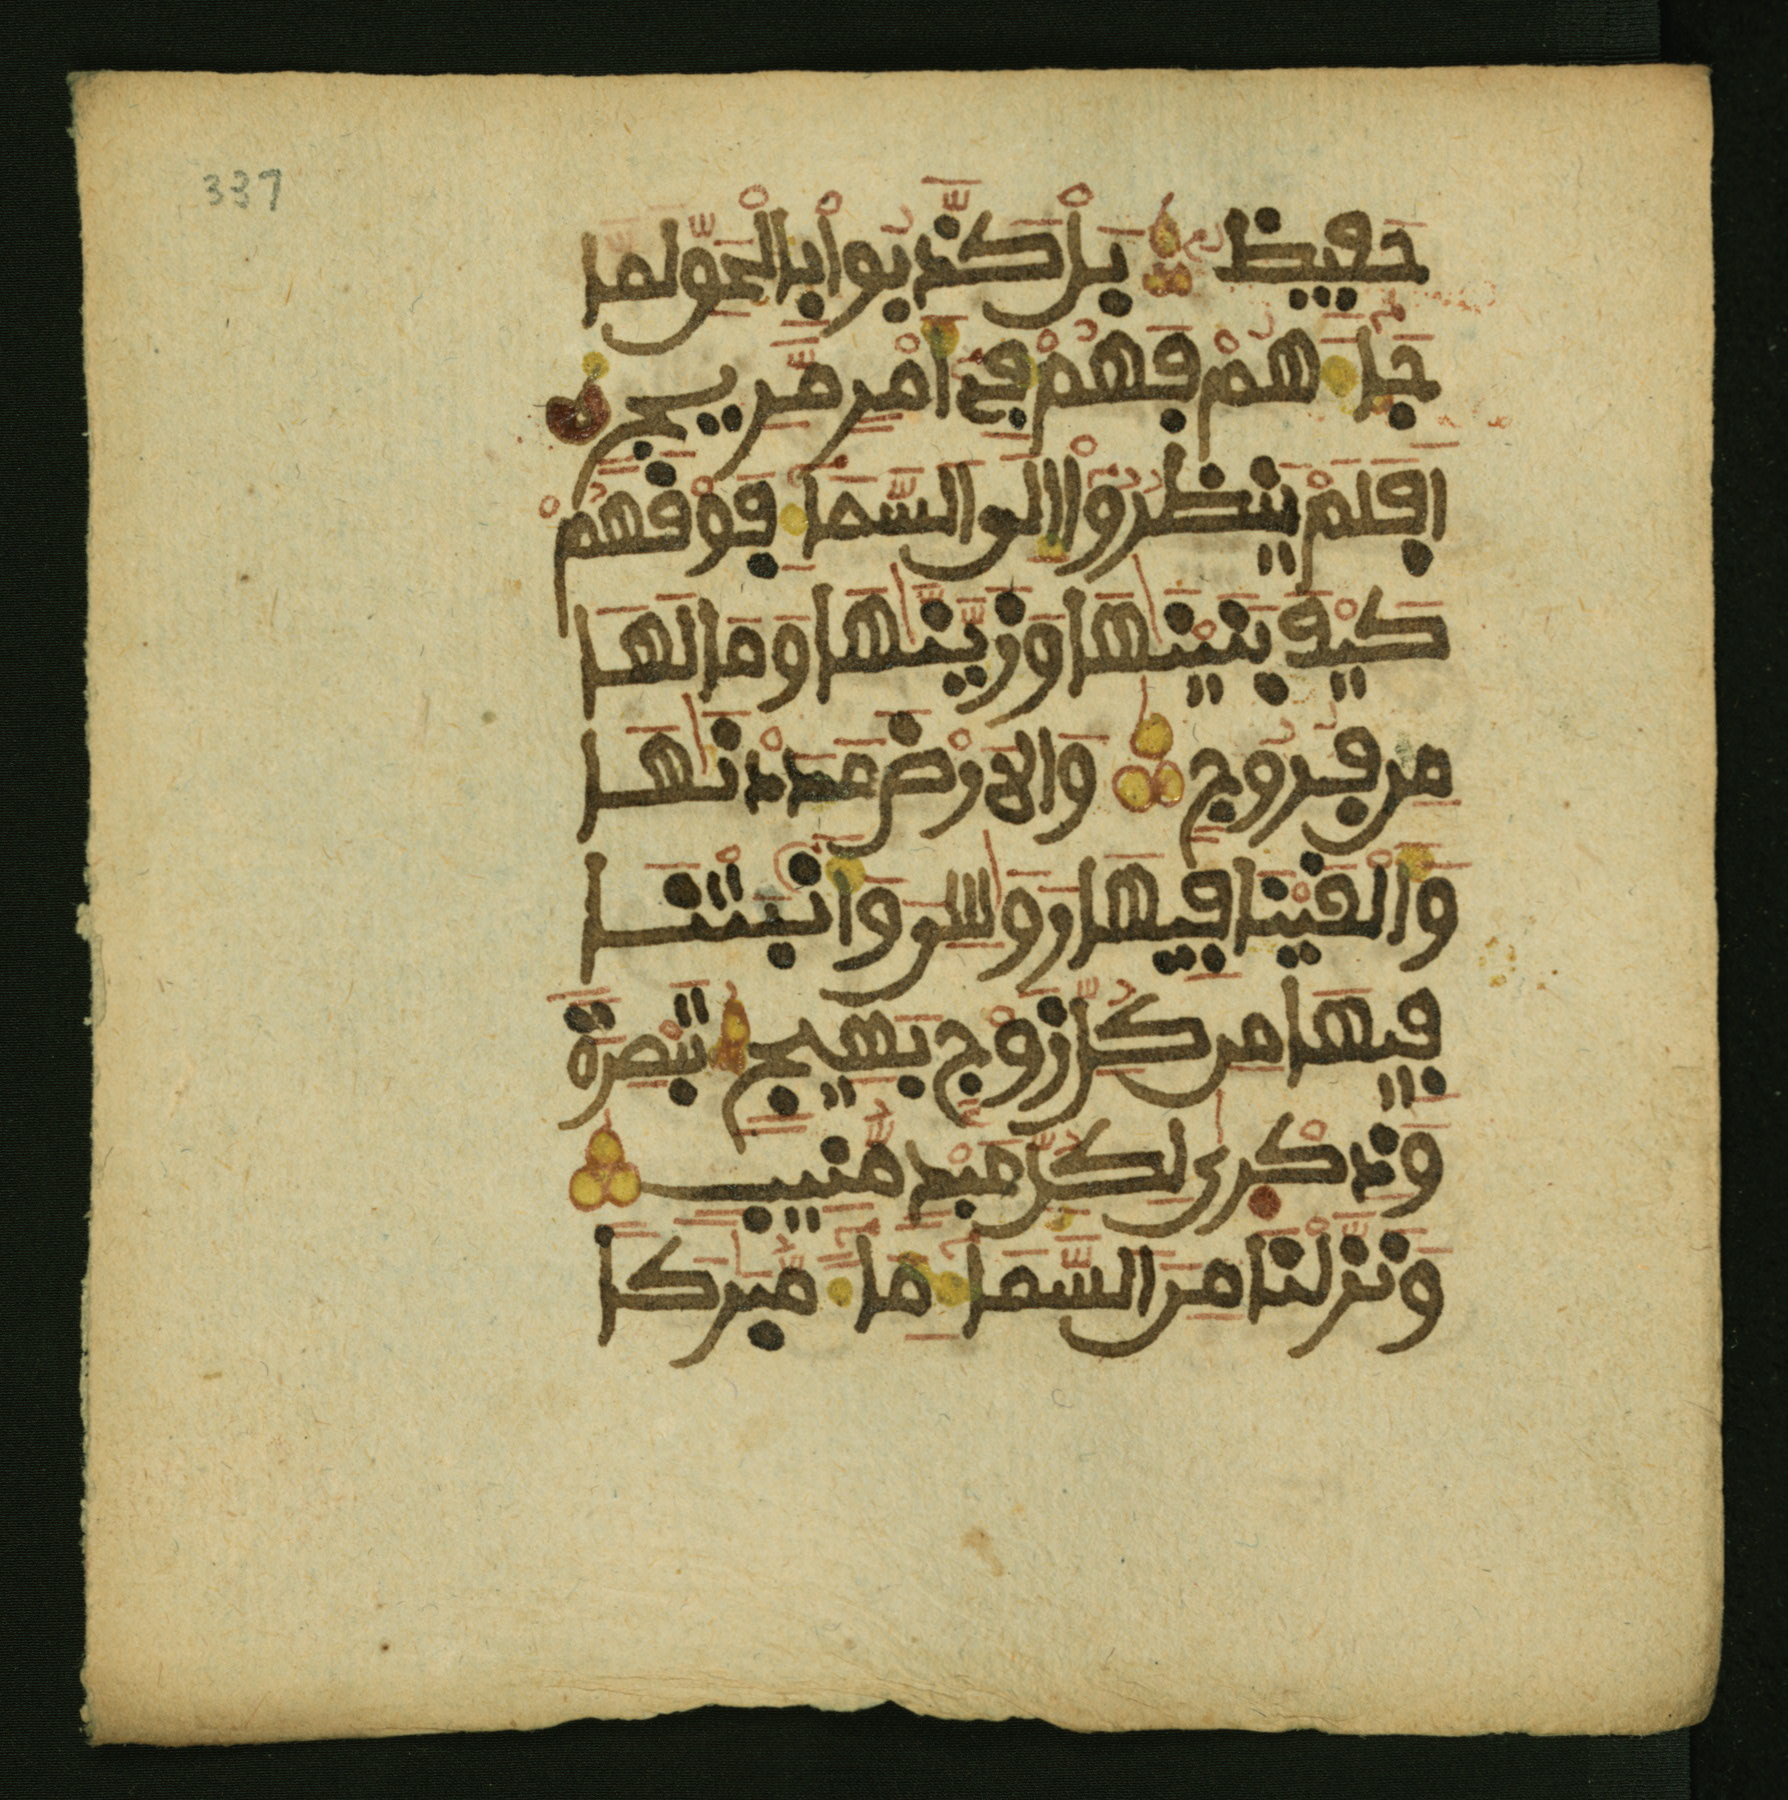 337
حَفِيظٌ بَلْ كَذَّبُوا۟ بِالْحَقِّ لَمَّا
جَاءَهُمْ فَهُمْ فِے أَمْرٍ مَّرِيجٍ
اَفَلَمْ يَنظُرُوٓا۟ إِلَى السَّمَاءِ فَوْقَهُمْ
كَيْفَ بَنَيْنَٰهَا وَزَيَّنَّٰهَا وَمَا لَهَا
مِن فُرُوجٍ وَالَارْضَ مَدَدْنَٰهَا
وَأَلْقَيْنَا فِيهَا رَوَٰسِىَ وَأَنبَتْنَا
فِيهَا مِن كُلِّ زَوْجٍ بَهِيجٍ تَبْصِرَةً
وَذِكْرَىٰ لِكُلِّ عَبْدٍ مُّنِيبٍ
وَنَزَّلْنَا مِنَ السَّمَاءِ مَاءً مُّبَٰرَكًا